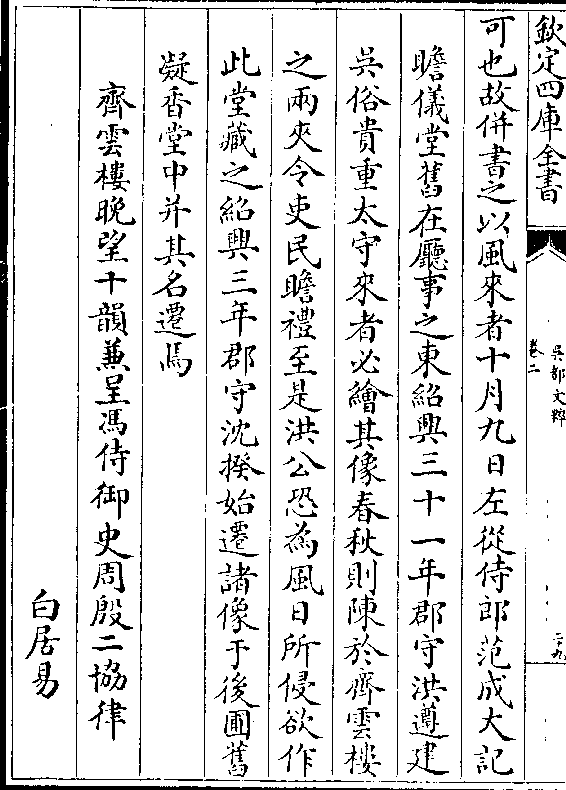 欽定四庫全書
吳都文粹
卷二
二九
可也故併書之以風來者十月九日左從侍郎范成大記
瞻儀堂舊在廳事之東紹興三十一年郡守洪遵建
吳俗貴重太守來者必繪其像春秋則陳於齊雲樓
之兩夾令吏民瞻禮至是洪公恐為風日所侵欲作
此堂藏之紹興三年郡守沈揆始遷諸像于後圃舊
凝香堂中并其名遷焉
齊雲樓晚望十韻兼呈馮侍御史周殷二協律
白居易